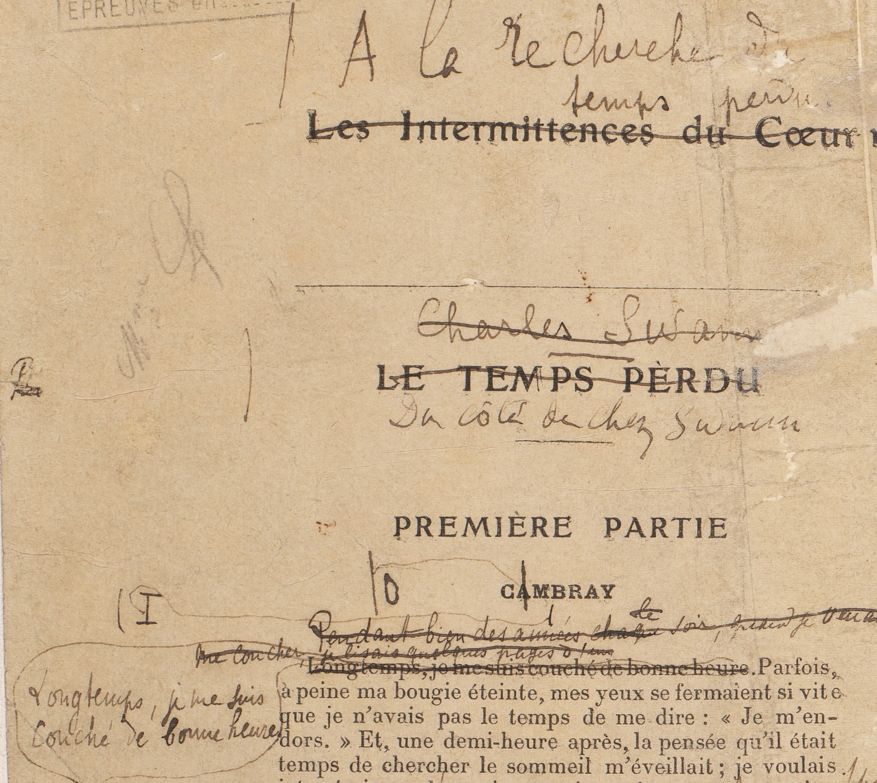 EPREUVES
A la recherche du
temps perdu
Les Intermittences du Cœur
Charles Swann
LE TEMPS PERDU
Du côté de chez Swann
PREMIÈRE PARTIE
o
CAMBRAY
I
Pendant bien des années chaque le soir, quand je venais
me coucher, je lisais quelques pages d'un
Longtemps, je me suis couché de bonne heure. Parfois,
Longtemps, je me suis
couché de bonne heure.
à peine ma bougie éteinte, mes yeux se fermaient si vite
que je n'avais pas le temps de me dire : « Je m'en-
dors. » Et, une demi-heure après, la pensée qu'il était
temps de chercher le sommeil m'éveillait ; je voulais